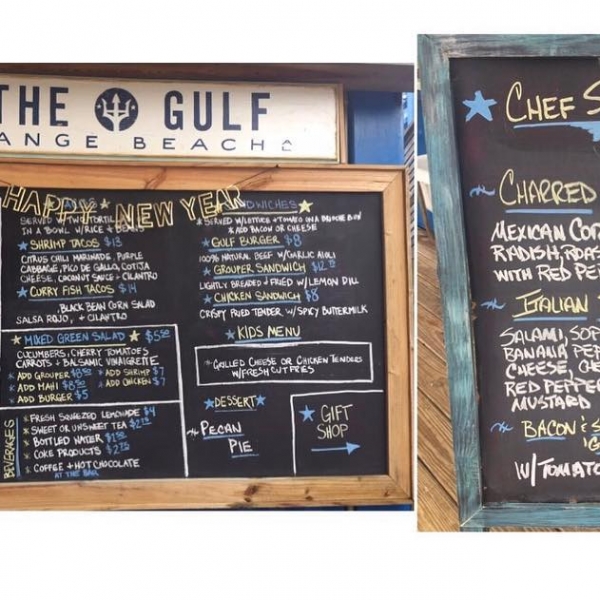 THE GULF
ANGE BEACH
HAPPY NEW YEAR
TACOS
SERVED W/TWO TORTIL
IN A BOWL W/RICE + BEANS
SHRIMP TACOS $13
CITRUS CHILI MARINADE, PURPLE
CABBAGE, PICO DE GALLO, COTIJA
CHEESE, COCONUT SAUCE + CILANTRO
CURRY FISH TACOS $14
BLACK BEAN CORN SALAD
SALSA ROJO, + CILANTRO
MIXED GREEN SALAD $5.50
CUCUMBERS, CHERRY TOMATOES
CARROTS + BALSAMIC VINAIGRETTE
ADD GROUPER $8.50
ADD SHRIMP $7
ADD MAHI $8.50
ADD CHICKEN $7
ADD BURGER $5
BEVERAGES
FRESH SQUEEZED LEMONADE $4
SWEET OR UNSWEET TEA
BOTTLED WATER
COKE PRODUCTS
COFFEE + HOT CHOCOLATE
AT THE BAR
SANDWICHES
SERVED W/LETTUCE + TOMATO ON A BRIOCHE BUN
ADD BACON OR CHEESE
GULF BURGER $8
100% NATURAL BEEF W/GARLIC AIOLI
GROUPER SANDWICH
LIGHTLY BREADED + FRIED W/LEMON DILL
CHICKEN SANDWICH $8
CRISPY FRIED TENDER W/SPICY BUTTERMILK
KIDS MENU
GRILLED CHEESE OR CHICKEN TENDERS
W/FRESH CUT FRIES
DESSERT
PECAN
PIE
GIFT
SHOP
CHEF S
CHARRED
MEXICAN COR
RADISH, ROAS
WITH RED PE
ITALIAN
SALAMI, SOP
BANANA PE
CHEESE, CHE
RED PEPPE
MUSTARD
BACON & S
W/TOMATO